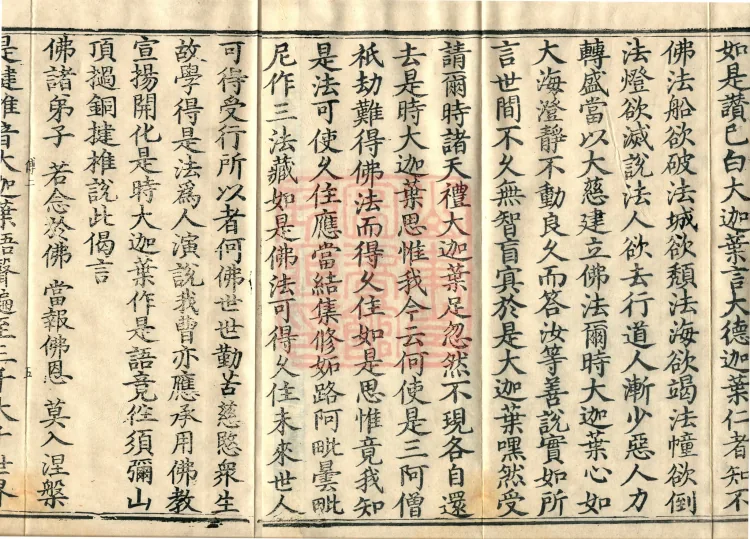 如是讃已白大迦葉言大德迦葉仁者知不
佛法船欲破法城欲頹法海欲竭法幢欲倒
法燈欲滅說法人欲去行道人漸少惡人力
轉盛當以大慈建立佛法爾時大迦葉心如
大海澄靜不動良久而答汝等善說實如所
言世間不久無智盲冥於是大迦葉嘿然受
請爾時諸天禮大迦葉足忽然不現各自還
去是時大迦葉思惟我今云何使是三阿僧
祇劫難得佛法而得久住如是思惟竟我知
是法可使久住應當結集修妬路阿毗曇毗
尼作三法藏如是佛法可得久住未來世人
可得受行所以者何佛世世勤苦慈愍衆生
故學得是法爲人演說我曹亦應承用佛教
宣揚開化是時大迦葉作是語竟徃須彌山
頂撾銅揵椎說此偈言
佛諸弟子 若念於佛 當報佛恩 莫入涅槃
是揵椎音大迦葉語聲遍至三千大千世界